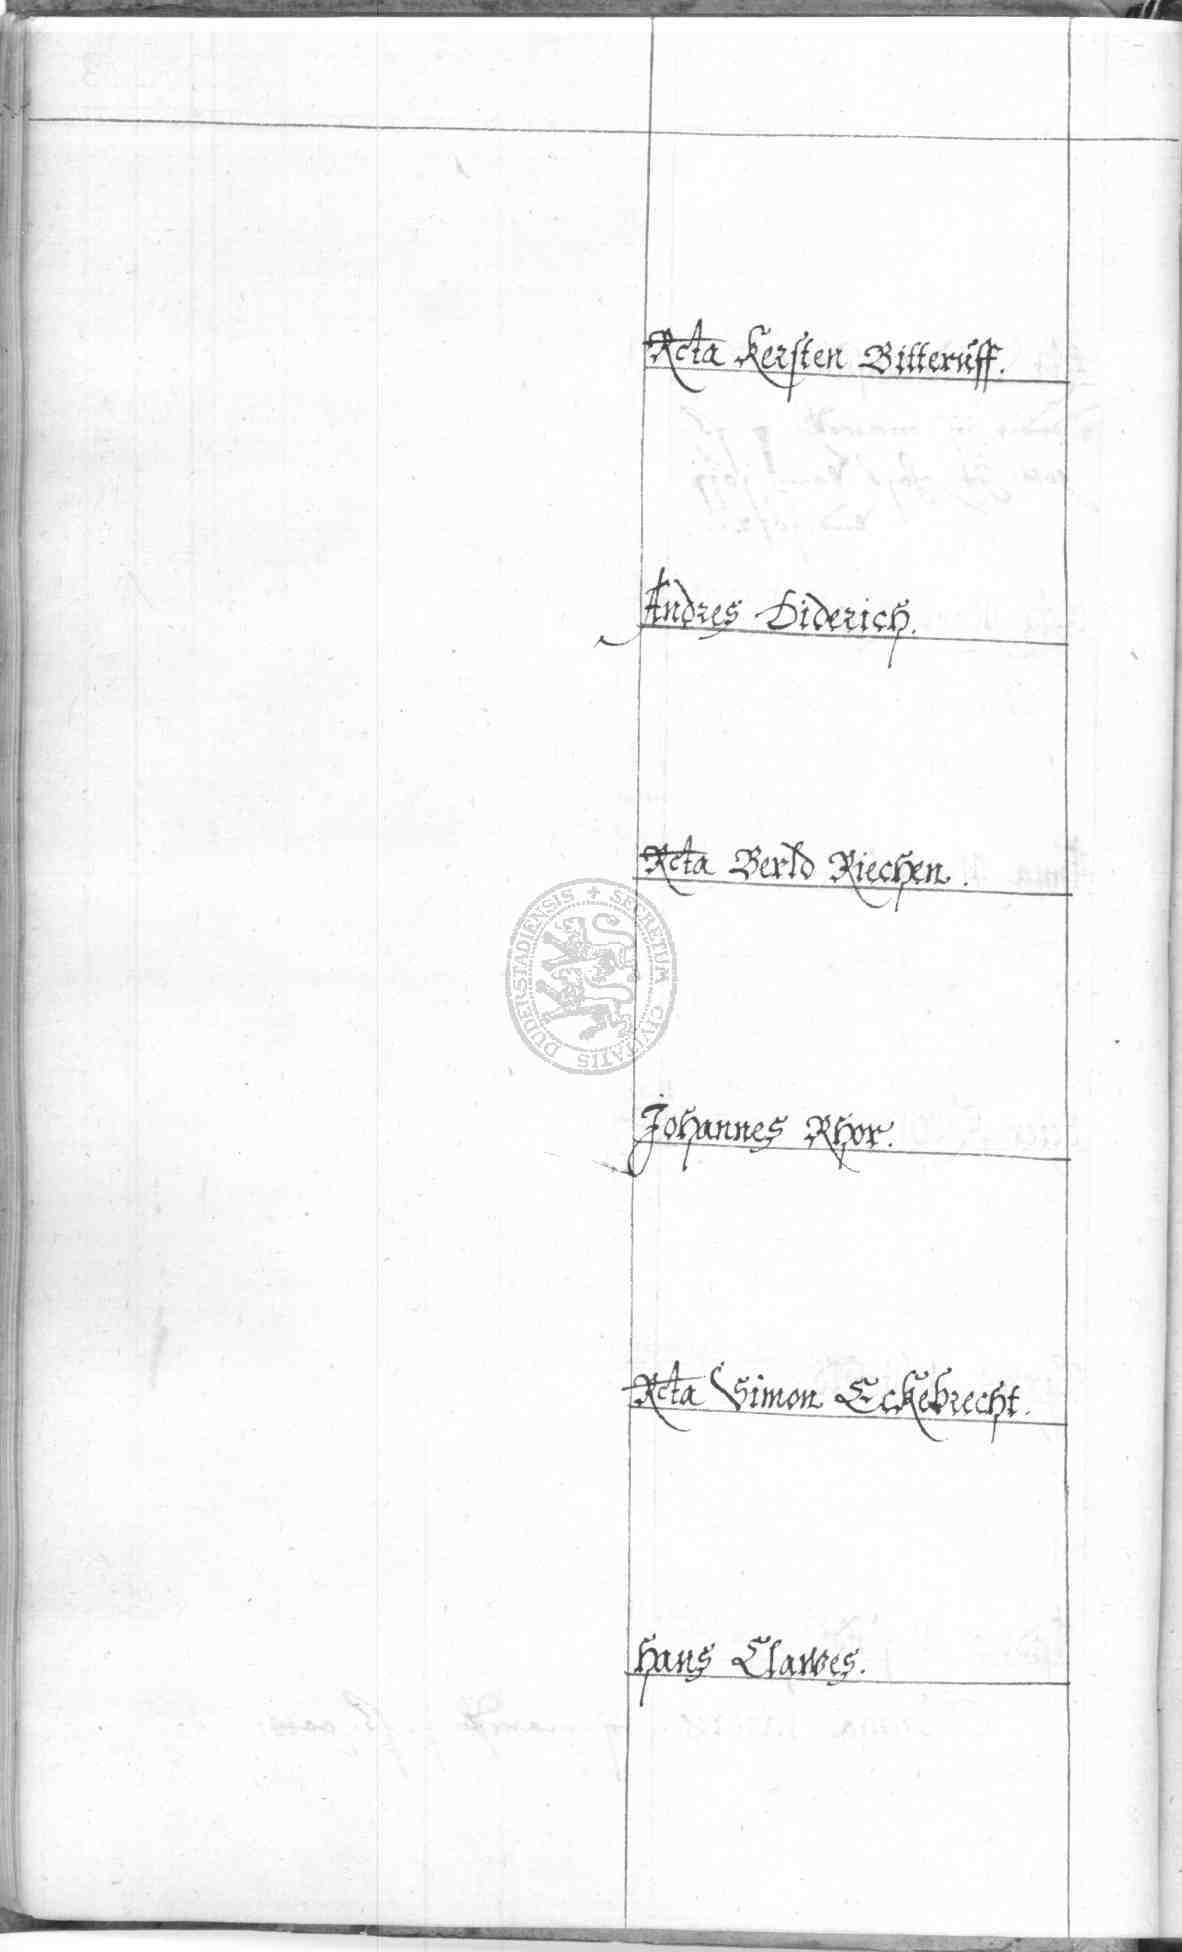 Rcta Kersten Bitterüff.
Andres Diderich.
Rcta Berld Riechen.
SECRETUM CIVITATIS DUDERSTADIENSIS
Johannes Rhor.
Rcta Simon Eckebrecht.
Hans Clawes.